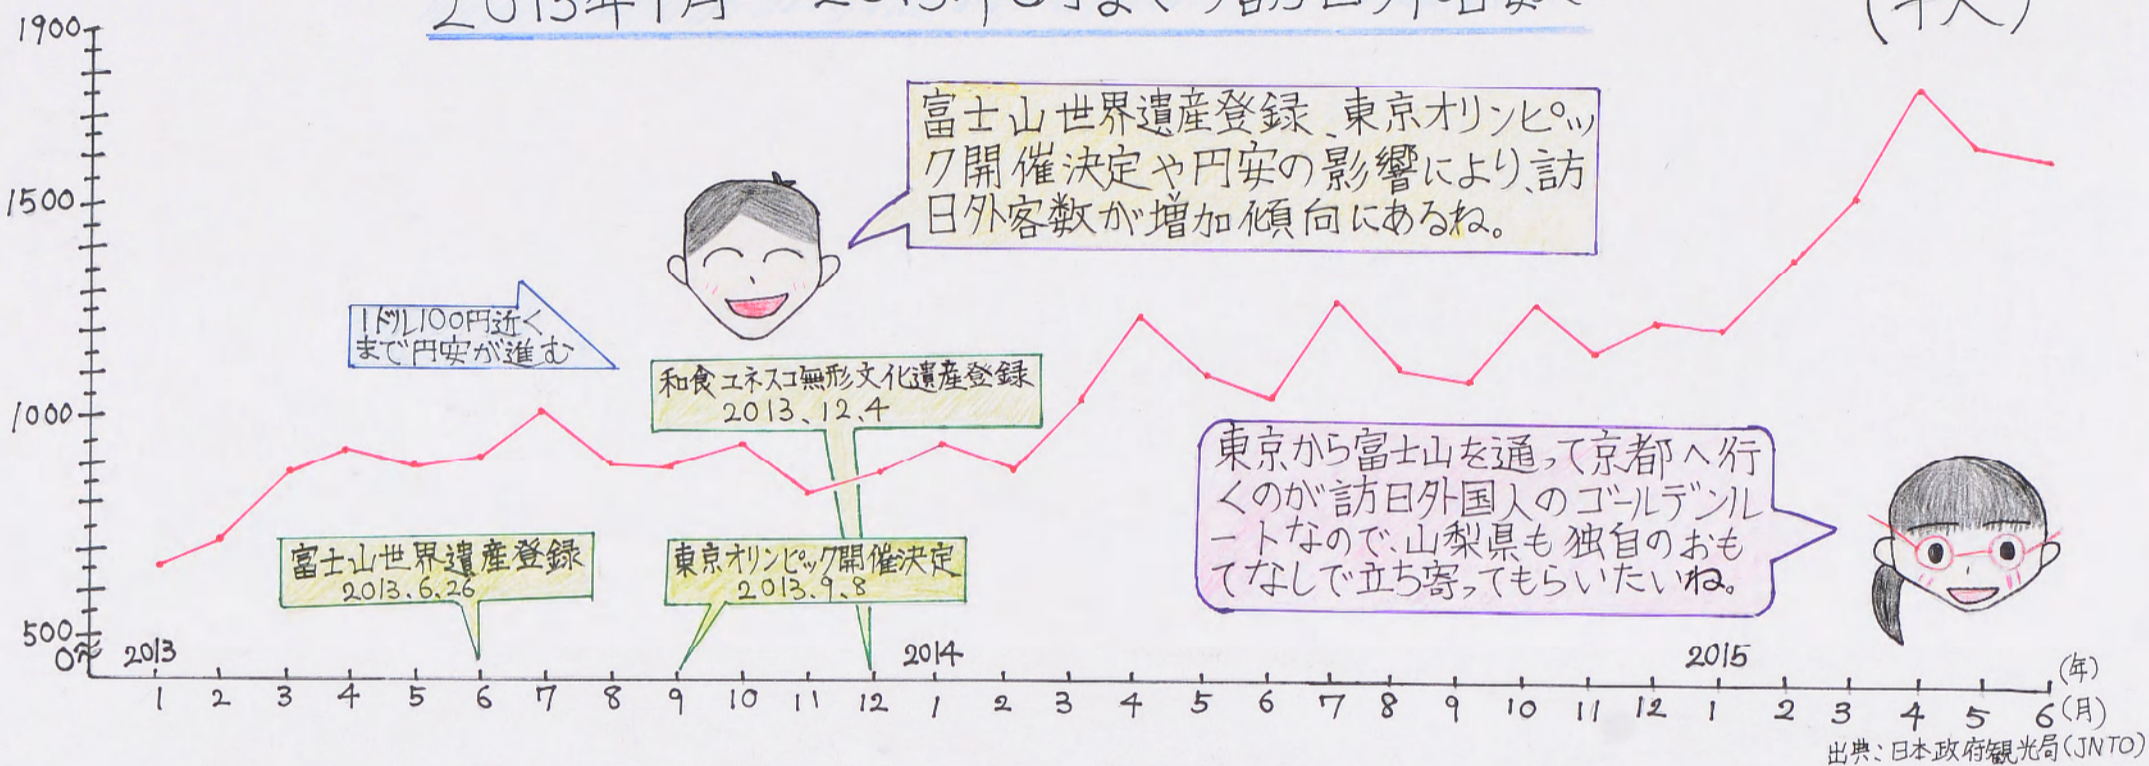 (千人)
1900
1500
1000
500
0
富士山世界遺産登録、東京オリンピッ
ク開催決定や円安の影響により、訪
日外客数が増加傾向にあるね。
1ドル100円近く
まで円安が進む
和食ユネスコ無形文化遺産登録
2013.12.4
富士山世界遺産登録
2013.6.26
東京オリンピック開催決定
2013.9.8
東京から富士山を通って京都へ行
くのが訪日外国人のゴールデンル
ートなので、山梨県も独自のおも
てなしで立ち寄ってもらいたいね。
2013 2014 2015 (年)
1 2 3 4 5 6 7 8 9 10 11 12 1 2 3 4 5 6 7 8 9 10 11 12 1 2 3 4 5 6 (月)
出典:日本政府観光局(JNTO)